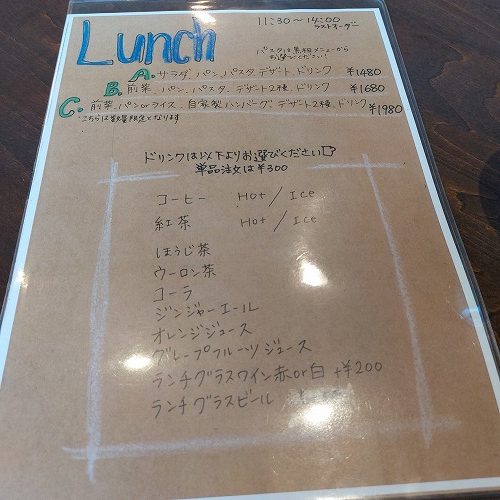 Lunch
11:30～14:00
ラストオーダー
パスタは黒板メニューから
お選びください!
A. サラダ、パン、パスタ、デザート、ドリンク ¥1480
B. 前菜、パン、パスタ、デザート2種、ドリンク ¥1680
C. 前菜、パンorライス、自家製ハンバーグ、デザート2種、ドリンク ¥1980
こちらは数量限定となります
ドリンクは以下よりお選びください
単品注文は¥300
コーヒー Hot / Ice
紅茶 Hot / Ice
ほうじ茶
ウーロン茶
コーラ
ジンジャーエール
オレンジジュース
グレープフルーツジュース
ランチグラスワイン赤or白 +¥200
ランチグラスビール